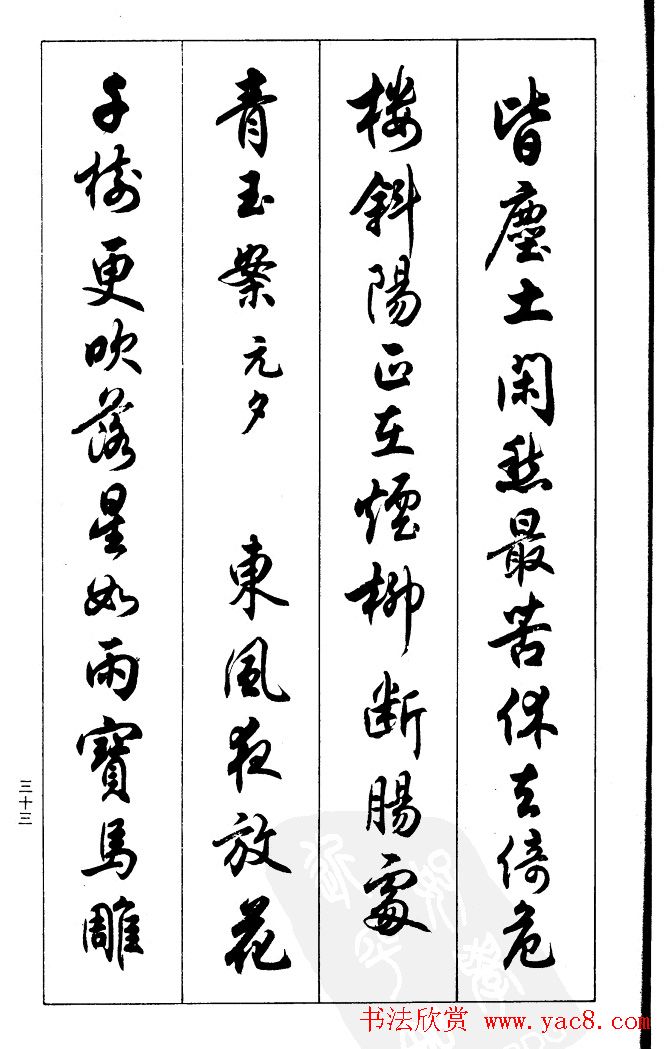 皆塵土閑愁最苦休去倚危
樓斜陽正在煙柳断腸處
青玉案 元夕 東風夜放花
千樹更吹落星如雨寶馬雕
三十三
书法欣赏 www.yac8.com